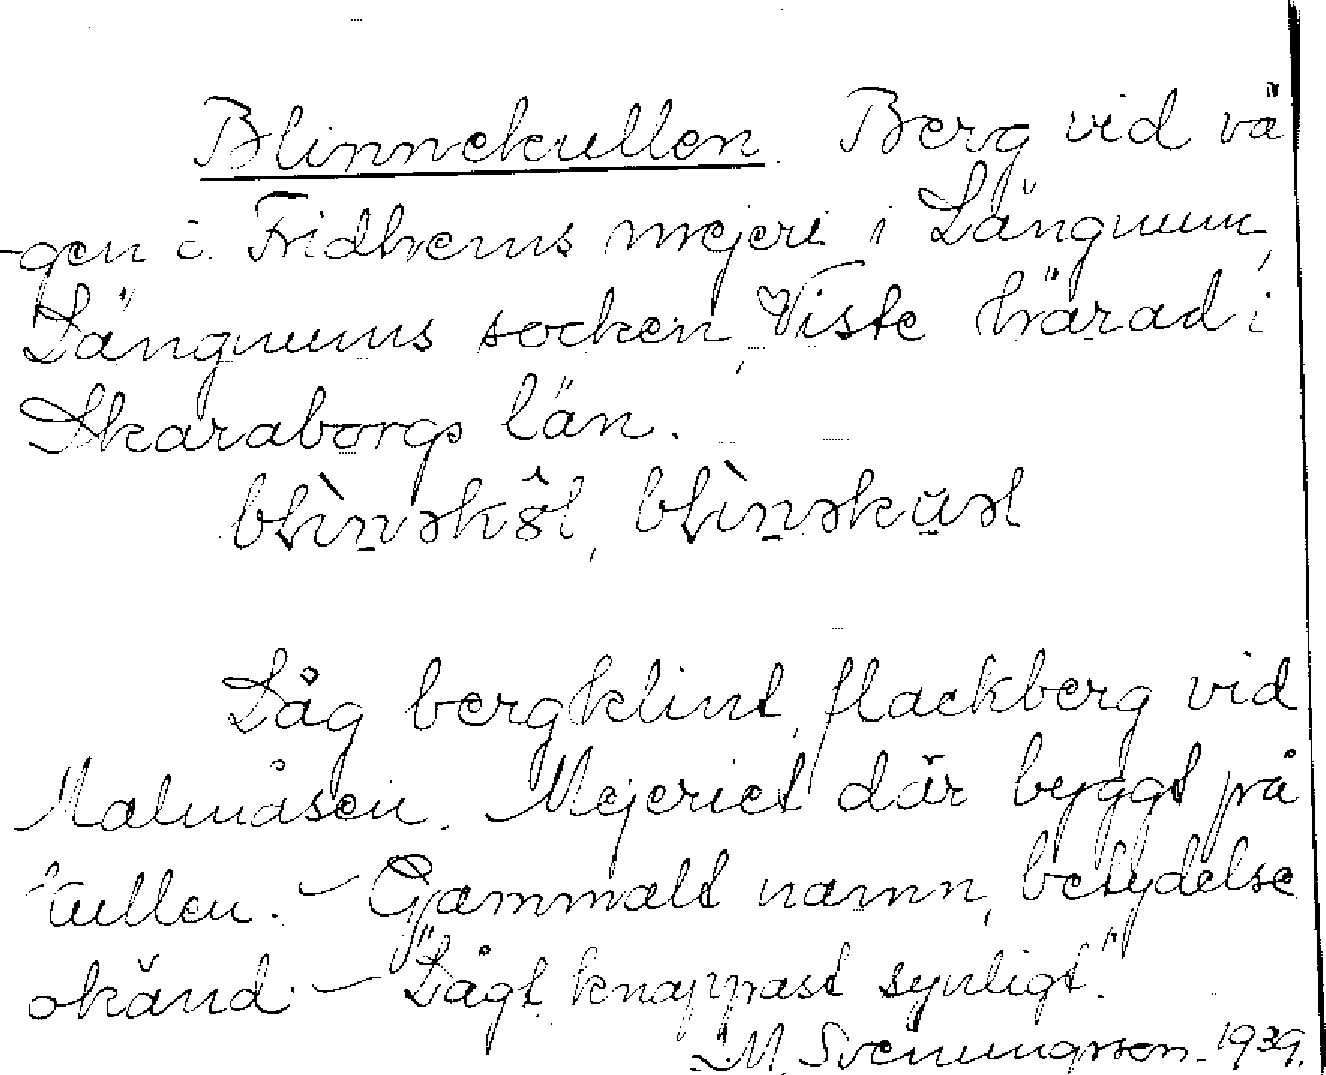 Blinnekullen. Berg vid vä
gen i. Fridhems mejeri i Längnum,
Längnums socken, Viste härad i
Skaraborgs län.
Låg bergklint, flackberg vid
Malmåsen. Mejeriet där byggt på
kullen. — Gammalt namn, betydelse
okänd. — "Lågt, knappast synligt".
M. Svenungsson. 1939.